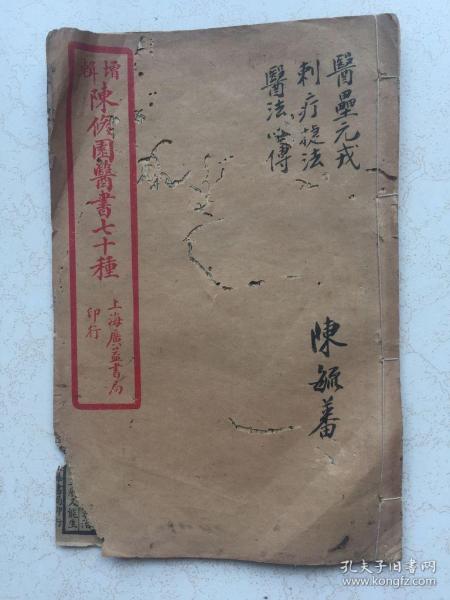 醫壘元戎
刺疔捷法
醫法心傳
陳毓蕃
增輯
陳修園醫書七十種
上海廣益書局
印行
孔夫子旧书网
www.kongfz.com